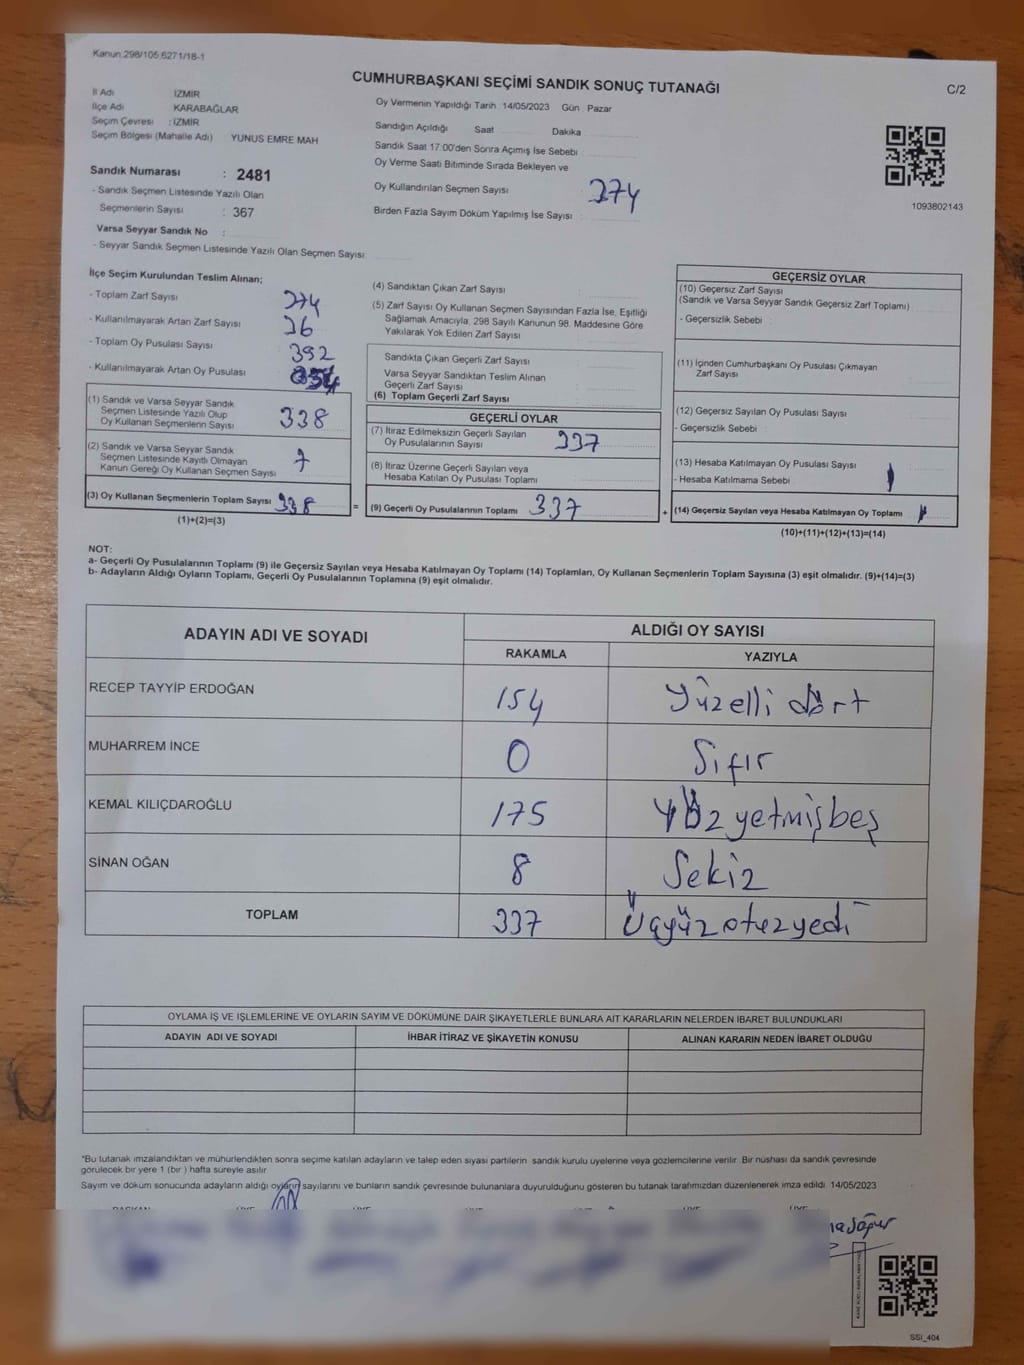 Kanun 298/105,6271/18-1
CUMHURBAŞKANI SEÇİMİ SANDIK SONUÇ TUTANAĞI
C/2
İl Adı İZMİR
İlçe Adı KARABAĞLAR
Seçim Çevresi : İZMİR
Seçim Bölgesi (Mahalle Adı) YUNUS EMRE MAH
Sandık Numarası : 2481
- Sandık Seçmen Listesinde Yazılı Olan
Seçmenlerin Sayısı : 367
Varsa Seyyar Sandık No :
- Seyyar Sandık Seçmen Listesinde Yazılı Olan Seçmen Sayısı:
Oy Vermenin Yapıldığı Tarih : 14/05/2023 Gün : Pazar
Sandığın Açıldığı Saat Dakika
Sandık Saat 17:00'den Sonra Açımış İse Sebebi :
Oy Verme Saati Bitiminde Sırada Bekleyen ve
Oy Kullandırılan Seçmen Sayısı : 374
Birden Fazla Sayım Döküm Yapılmış İse Sayısı :
1093802143
İlçe Seçim Kurulundan Teslim Alınan;
- Toplam Zarf Sayısı 374
- Kullanılmayarak Artan Zarf Sayısı 36
- Toplam Oy Pusulası Sayısı 392
- Kullanılmayarak Artan Oy Pusulası
(1) Sandık ve Varsa Seyyar Sandık
Seçmen Listesinde Yazılı Olup
Oy Kullanan Seçmenlerin Sayısı 338
(2) Sandık ve Varsa Seyyar Sandık
Seçmen Listesinde Kayıtlı Olmayan
Kanun Gereği Oy Kullanan Seçmen Sayısı
(3) Oy Kullanan Seçmenlerin Toplam Sayısı 338
(1)+(2)=(3)
=
(4) Sandıktan Çıkan Zarf Sayısı :
(5) Zarf Sayısı Oy Kullanan Seçmen Sayısından Fazla İse, Eşitliği
Sağlamak Amacıyla, 298 Sayılı Kanunun 98. Maddesine Göre
Yakılarak Yok Edilen Zarf Sayısı :
Sandıkta Çıkan Geçerli Zarf Sayısı :
Varsa Seyyar Sandıktan Teslim Alınan
Geçerli Zarf Sayısı :
(6) Toplam Geçerli Zarf Sayısı :
GEÇERLİ OYLAR
(7) İtiraz Edilmeksizin Geçerli Sayılan
Oy Pusulalarının Sayısı : 337
(8) İtiraz Üzerine Geçerli Sayılan veya
Hesaba Katılan Oy Pusulası Toplamı :
(9) Geçerli Oy Pusulalarının Toplamı : 337
+
GEÇERSİZ OYLAR
(10) Geçersiz Zarf Sayısı
(Sandık ve Varsa Seyyar Sandık Geçersiz Zarf Toplamı)
- Geçersizlik Sebebi :
(11) İçinden Cumhurbaşkanı Oy Pusulası Çıkmayan
Zarf Sayısı :
(12) Geçersiz Sayılan Oy Pusulası Sayısı
- Geçersizlik Sebebi :
(13) Hesaba Katılmayan Oy Pusulası Sayısı 1
- Hesaba Katılmama Sebebi :
(14) Geçersiz Sayılan veya Hesaba Katılmayan Oy Toplamı 1
(10)+(11)+(12)+(13)=(14)
NOT:
a- Geçerli Oy Pusulalarının Toplamı (9) ile Geçersiz Sayılan veya Hesaba Katılmayan Oy Toplamı (14) Toplamları, Oy Kullanan Seçmenlerin Toplam Sayısına (3) eşit olmalıdır. (9)+(14)=(3)
b- Adayların Aldığı Oyların Toplamı, Geçerli Oy Pusulalarının Toplamına (9) eşit olmalıdır.
ADAYIN ADI VE SOYADI ALDIĞI OY SAYISI
RAKAMLA YAZIYLA
RECEP TAYYİP ERDOĞAN 154 Yüzelli dört
MUHARREM İNCE 0 Sıfır
KEMAL KILIÇDAROĞLU 175 Yüz yetmişbeş
SİNAN OĞAN 8 Sekiz
TOPLAM 337 Üçyüzotuzyedi
OYLAMA İŞ VE İŞLEMLERİNE VE OYLARIN SAYIM VE DÖKÜMÜNE DAİR ŞİKAYETLERLE BUNLARA AİT KARARLARIN NELERDEN İBARET BULUNDUKLARI
ADAYIN ADI VE SOYADI İHBAR İTİRAZ VE ŞİKAYETİN KONUSU ALINAN KARARIN NEDEN İBARET OLDUĞU
*Bu tutanak imzalandıktan ve mühürlendikten sonra seçime katılan adayların ve talep eden siyasi partilerin sandık kurulu üyelerine veya gözlemcilerine verilir. Bir nüshası da sandık çevresinde
görülecek bir yere 1 (bir) hafta süreyle asılır
Sayım ve döküm sonucunda adayların aldığı oyların sayılarını ve bunların sandık çevresinde bulunanlara duyurulduğunu gösteren bu tutanak tarafımızdan düzenlenerek imza edildi. 14/05/2023
BAŞKAN ÜYE ÜYE ÜYE ÜYE ÜYE
SSI_404